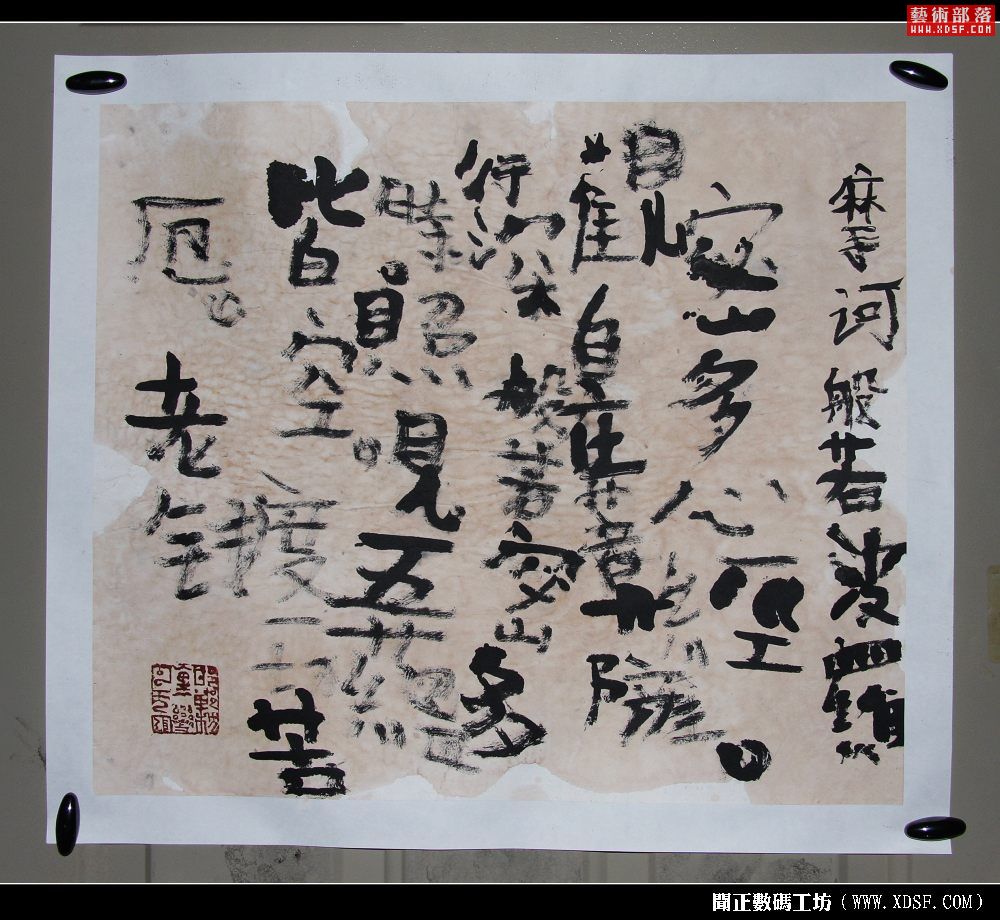 藝術部落
WWW.XDSF.COM
摩訶般若波羅
密多心經。
觀自在菩薩
行深般若密多
時。照見五蘊
皆空。度一切苦
厄。
老錢
聞正數碼工坊（WWW.XDSF.COM）